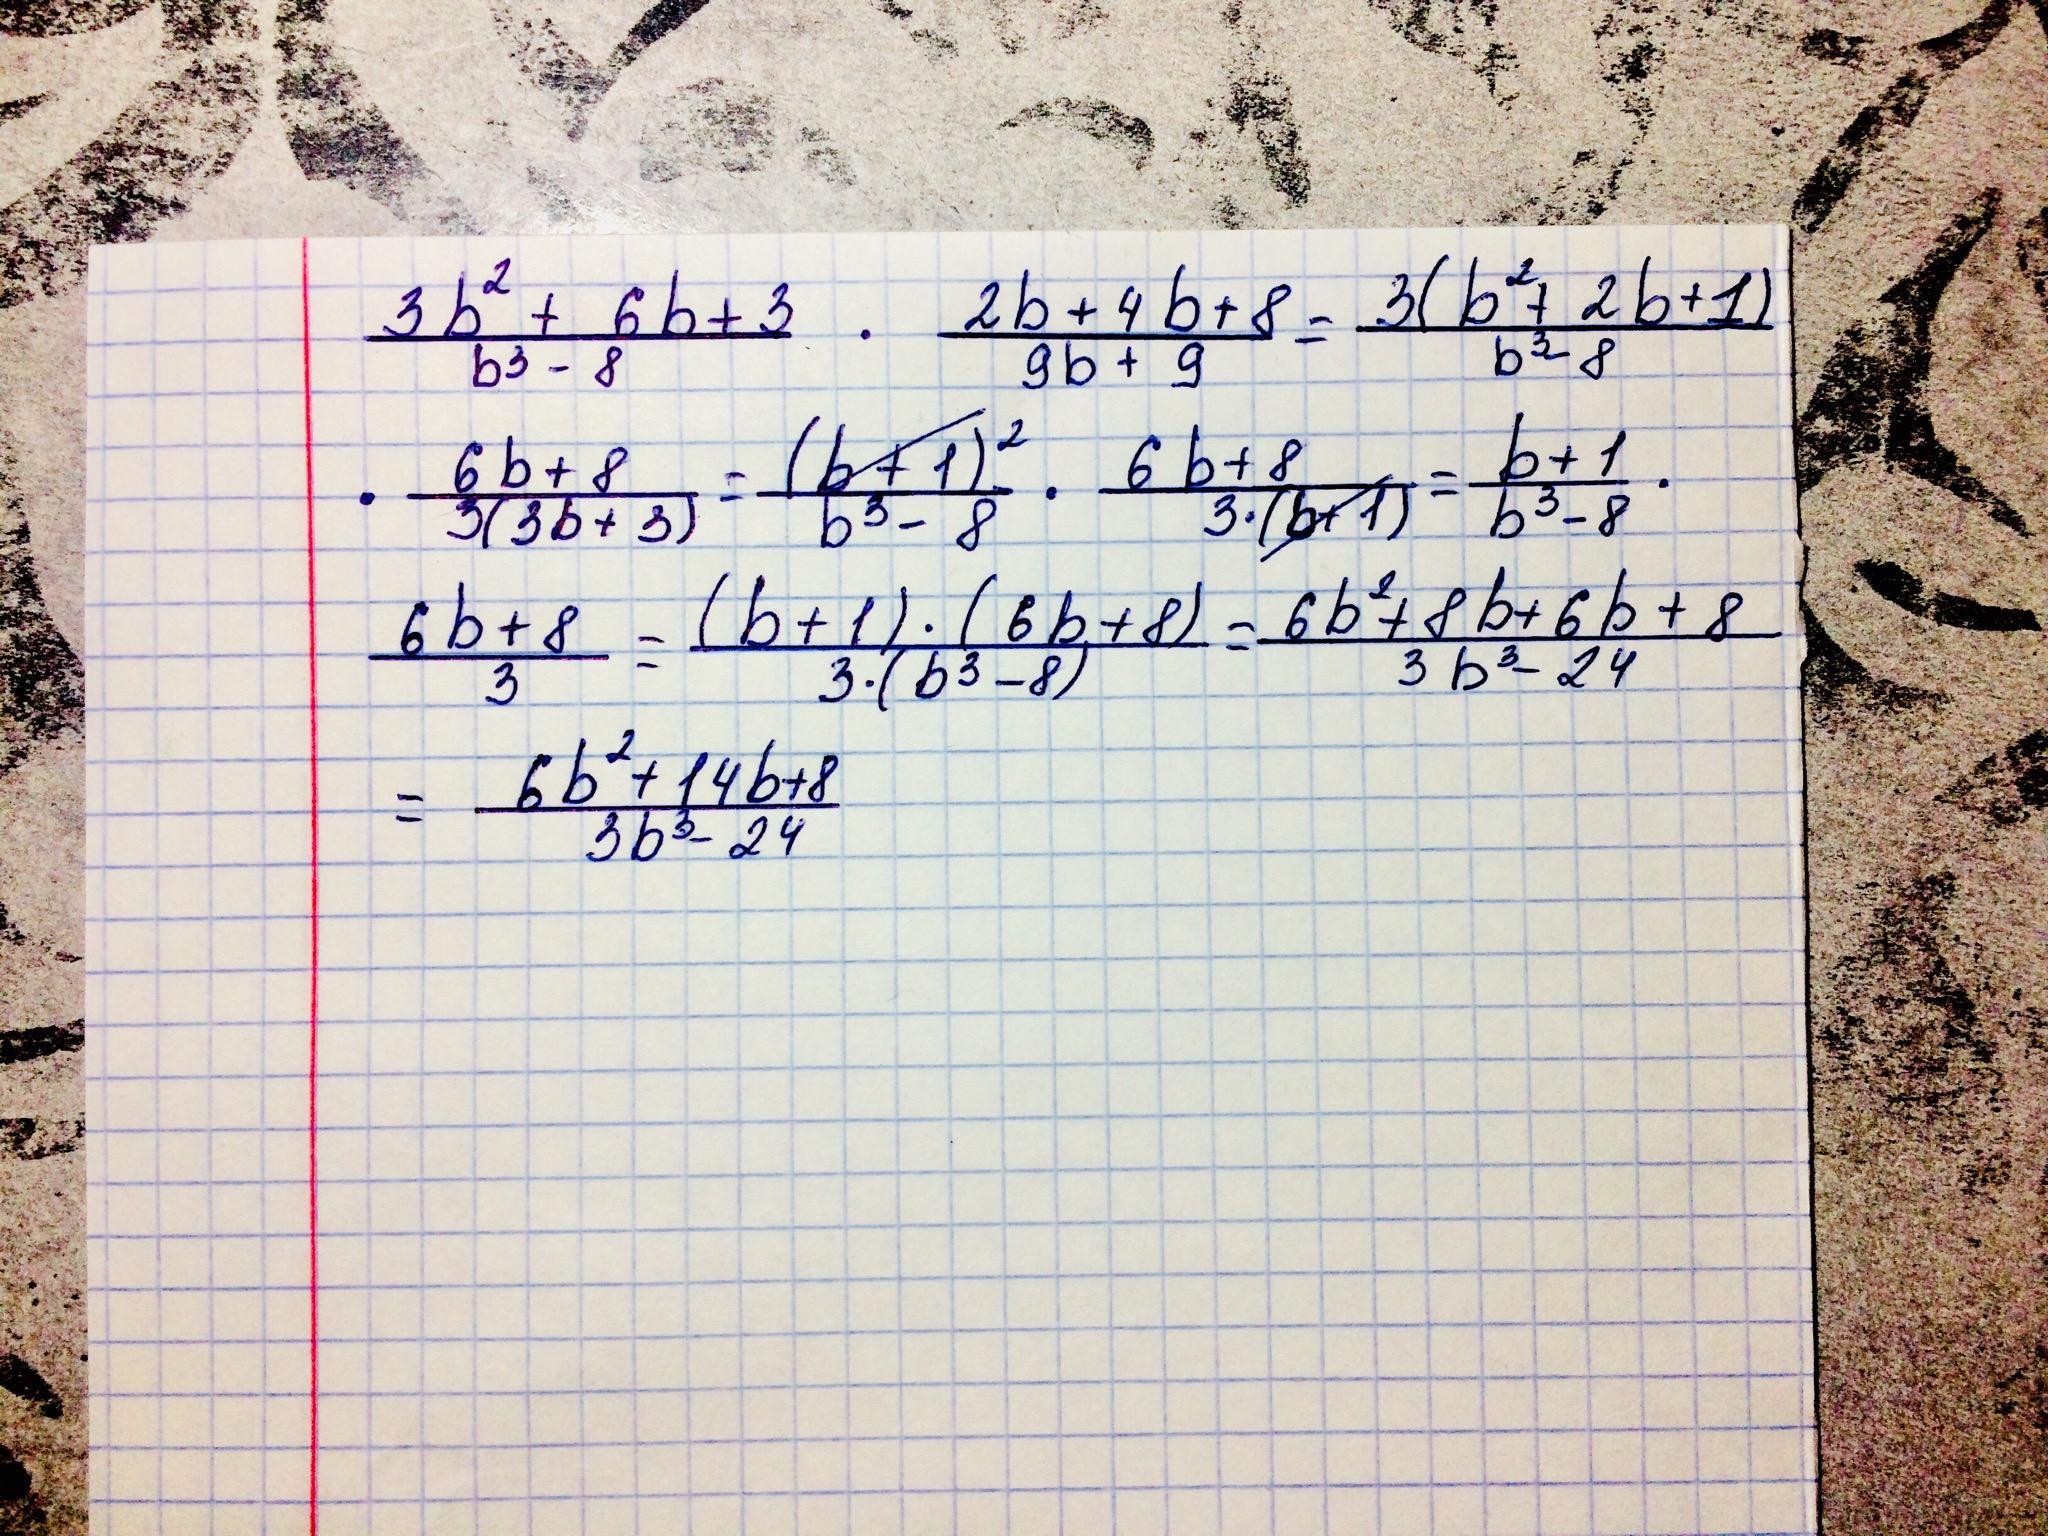 (3b² + 6b + 3)/(b³ - 8) · (2b + 4b + 8)/(9b + 9) = 3(b² + 2b + 1)/(b³ - 8)
· (6b + 8)/(3(3b + 3)) = (b + 1)²/(b³ - 8) · (6b + 8)/(3·(b + 1)) = (b + 1)/(b³ - 8) ·
(6b + 8)/3 = (b + 1)·(6b + 8)/(3·(b³ - 8)) = (6b² + 8b + 6b + 8)/(3b³ - 24)
= (6b² + 14b + 8)/(3b³ - 24)